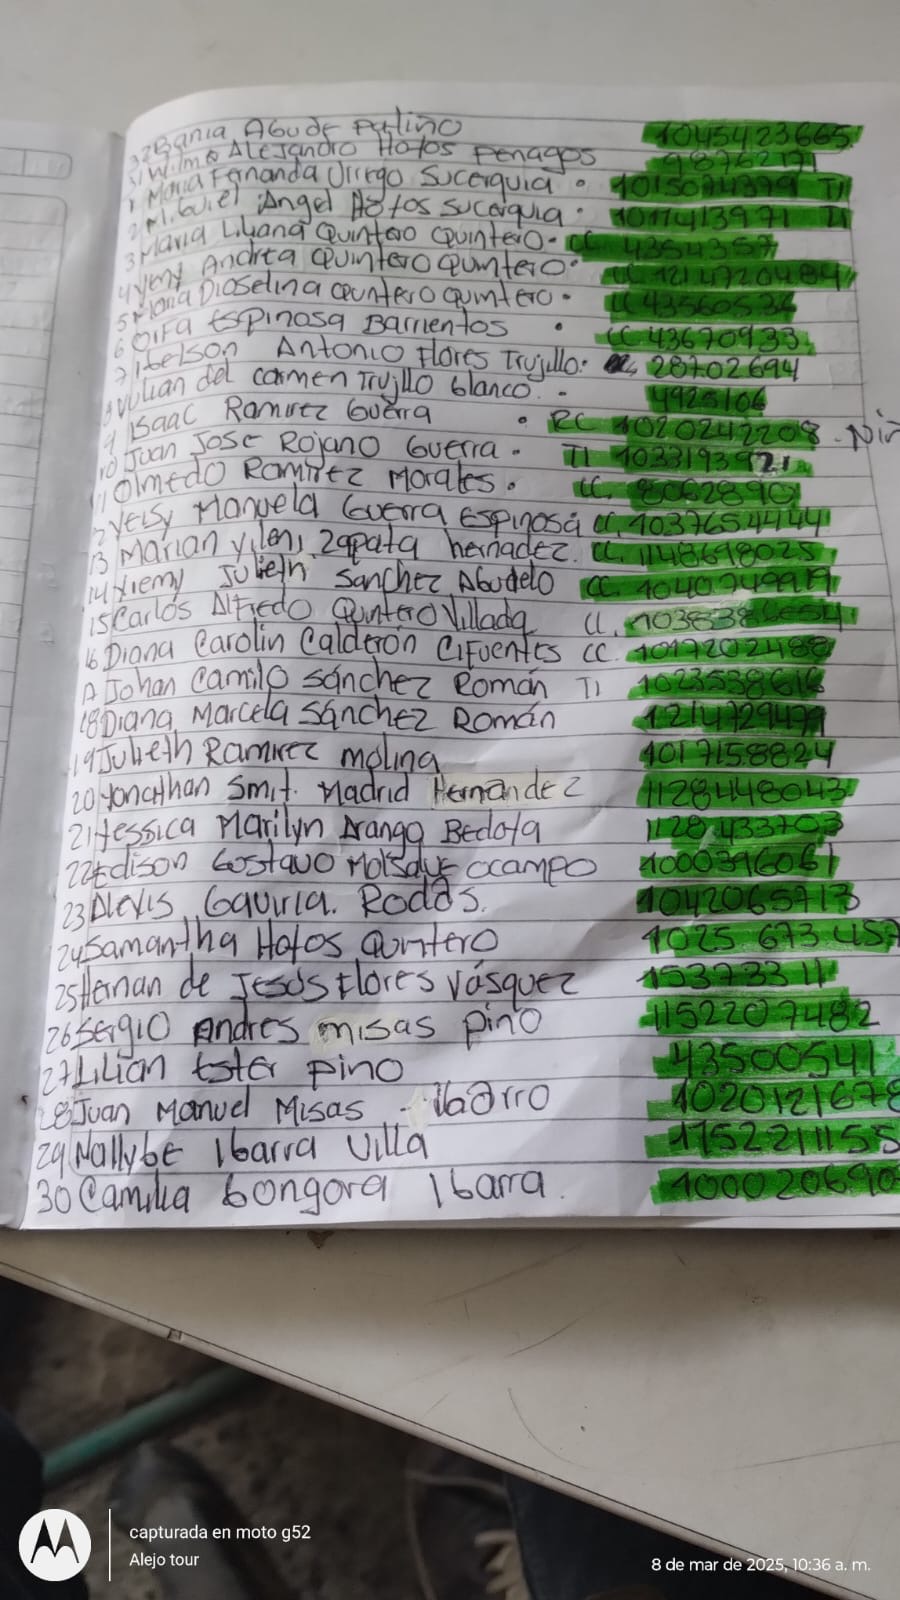 32 Bania Agude Patiño 1045423665
31 Wilme Alejandro Hoyos Penagos 98762171
1 Maria Fernanda Urrego Sucerquia . 1015074379 TI
2 Miguiel Angel Hoyos Sucerquia . 1017413971 TI
3 Maria Liliana Quintero Quintero . CC 4354357
4 Yeny Andrea Quintero Quintero . CC 1214720484
5 Maria Dioselina Quntero Quintero . CC 43560536
6 Oifa Espinosa Barrientos . CC 43670933
7 Antonio Flores Trujillo . 28702694
8 Yulian del carmen Trujllo blanco . 4925106
9 Isaac Ramirez Guerra . RC 1020242208 - Niñ
10 Juan Jose Rojano Guerra . TI 1033193921
11 Olmedo Ramirez Morales . CC. 80628901
12 Yeisy Manuela Guerra Espinosa CC 1037654444
13 Marian Yileni Zapata hernadez. CC. 1148698025
14 Yiemy Julieth Sanchez Agudelo CC 1040749919
15 Carlos Alfredo Quintero Villada CC.
16 Diana Carolin Calderón Cifuentes CC. 1017202488
17 Johan Camilo Sánchez Román TI 1023538616
18 Diana Marcela Sánchez Román 1214729479
19 Julieth Ramirez molina 1017158824
20 Yonathan Smit. Madrid Hernandez 1128448043
21 Yessica Marilyn Arango Bedoya 1128433703
22 Edison Gustavo ocampo 1000396061
23 Alexis Gaviria. Rodas. 1042065713
24 Samantha Hoyos Quntero 1025 673 457
25 Hernan de Jesus Flores Vásquez 153733 11
26 Sergio Andres misas pino 1152207482
27 Lilian Ester pino 43500541
28 Juan Manuel Misas - Ibarro 1020121678
29 Nallybe Ibarra Villa 1152211155
30 Camila Gongora Ibarra. 100020690
capturada en moto g52
Alejo tour
8 de mar de 2025, 10:36 a. m.